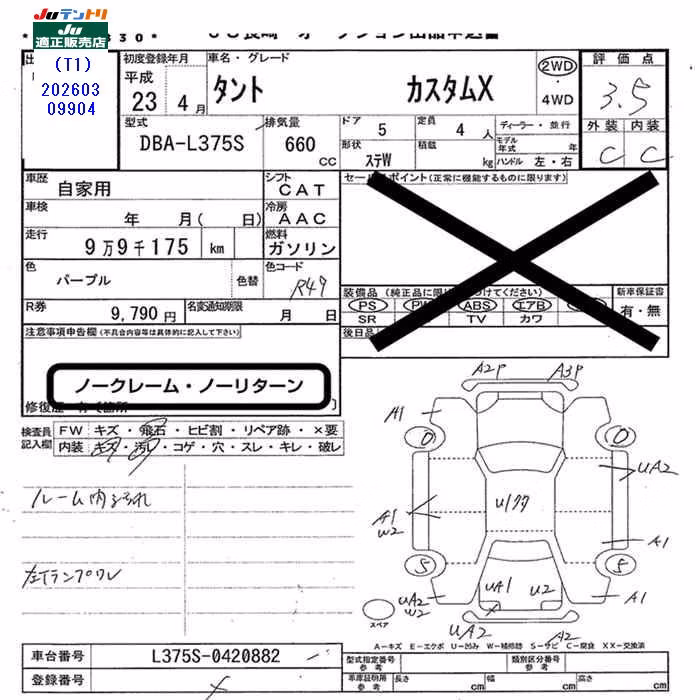 Juテントリ
Ju
適正販売店
(T1)
202603
09904
初度登録年月
平成
23 4月
車名・グレード
タント カスタムX
2WD
・
4WD
評価点
3.5
外装 内装
C C
型式
DBA-L375S
排気量
660
CC
ドア
5
定員
4人
形状
ステW
積載
kg
ディーラー・並行
モデル年式 年
ハンドル 左・右
車歴
自家用
シフト
CAT
車検
年 月( 日)
冷房
AAC
走行
9万9千175 km
燃料
ガソリン
色
パープル
色替
色コード
R49
R券
9,790円
名変通知期限
月 日
セールスポイント(正常に機能するものに限ります)
新車保証書
有・無
PS ABS エアB
SR TV カワ
注意事項申告欄(不具合内容等は具体的に記入して下さい)
ノークレーム・ノーリターン
検査員
記入欄
FW キズ・飛石・ヒビ割・リペア跡・×要
内装 キズ・汚レ・コゲ・穴・スレ・キレ・破レ
ルーム内よごれ
左Tランプワレ
A2P A3P
A1
UA2
A1
W2
A1
UA1 U2
UA2
W2
A1
UA2 A2
スペア
A-キズ E-エクボ U-凹み W-補修跡 S-サビ C-腐食 XX-交換済
車台番号
L375S-0420882
登録番号
型式指定番号
参考
類別区分番号
参考
車庫証明用
参考
長さ cm
幅 cm
高さ cm